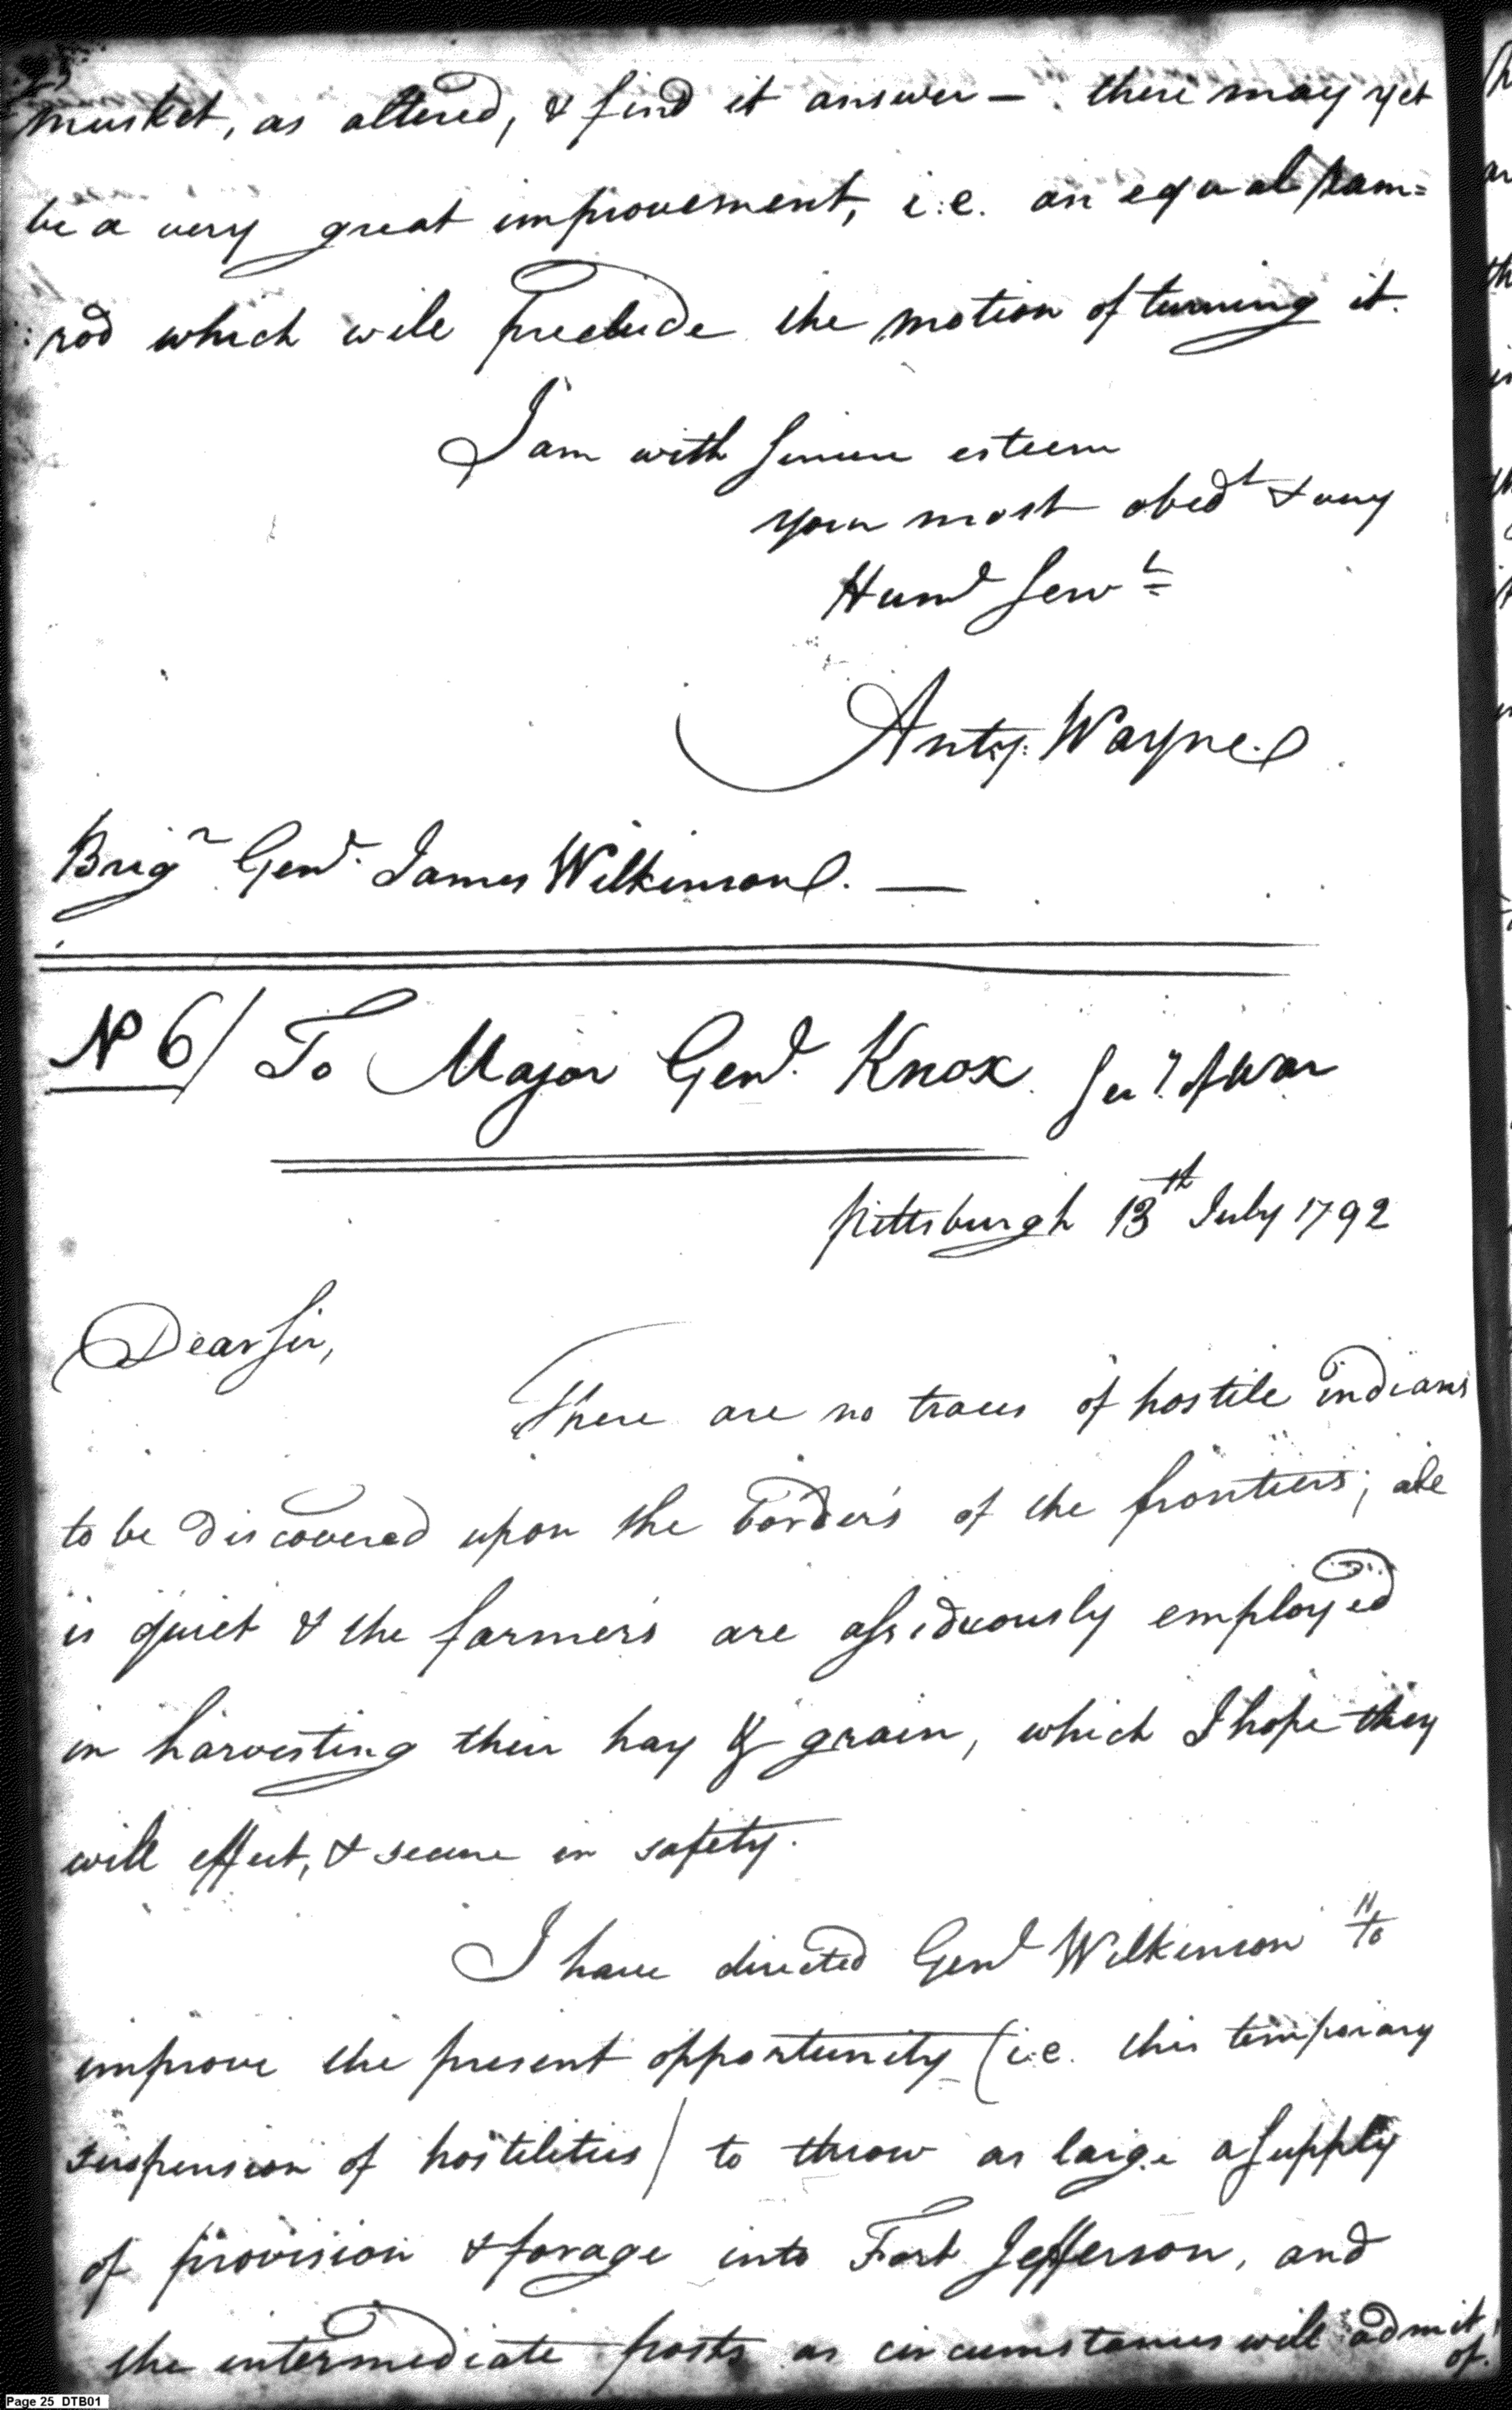 25
musket, as altered, & find it answer — there may yet
be a very great improvement, i.e. an equal ram=
rod which will preclude the motion of turning it.
I am with Sincere esteem
your most obedt & very
Huml Servt
Anty. Wayne
Brigr Genl. James Wilkinson. —
No 6/ To Major Genl. Knox Secy. of War
pittsburgh 13th July 1792
Dear Sir,
There are no traces of hostile indians
to be discovered upon the borders of the frontiers; all
is quiet & the farmers are assiduously employed
in harvesting their hay & grain, which I hope they
will effect, & secure in safety.
I have directed Genl Wilkinson to
improve the present opportunity (i.e. this temporary
suspension of hostilities) to throw as large a Supply
of provision & forage into Fort Jefferson, and
the intermediate posts as circumstances will admit
of.
Page 25 DTB01